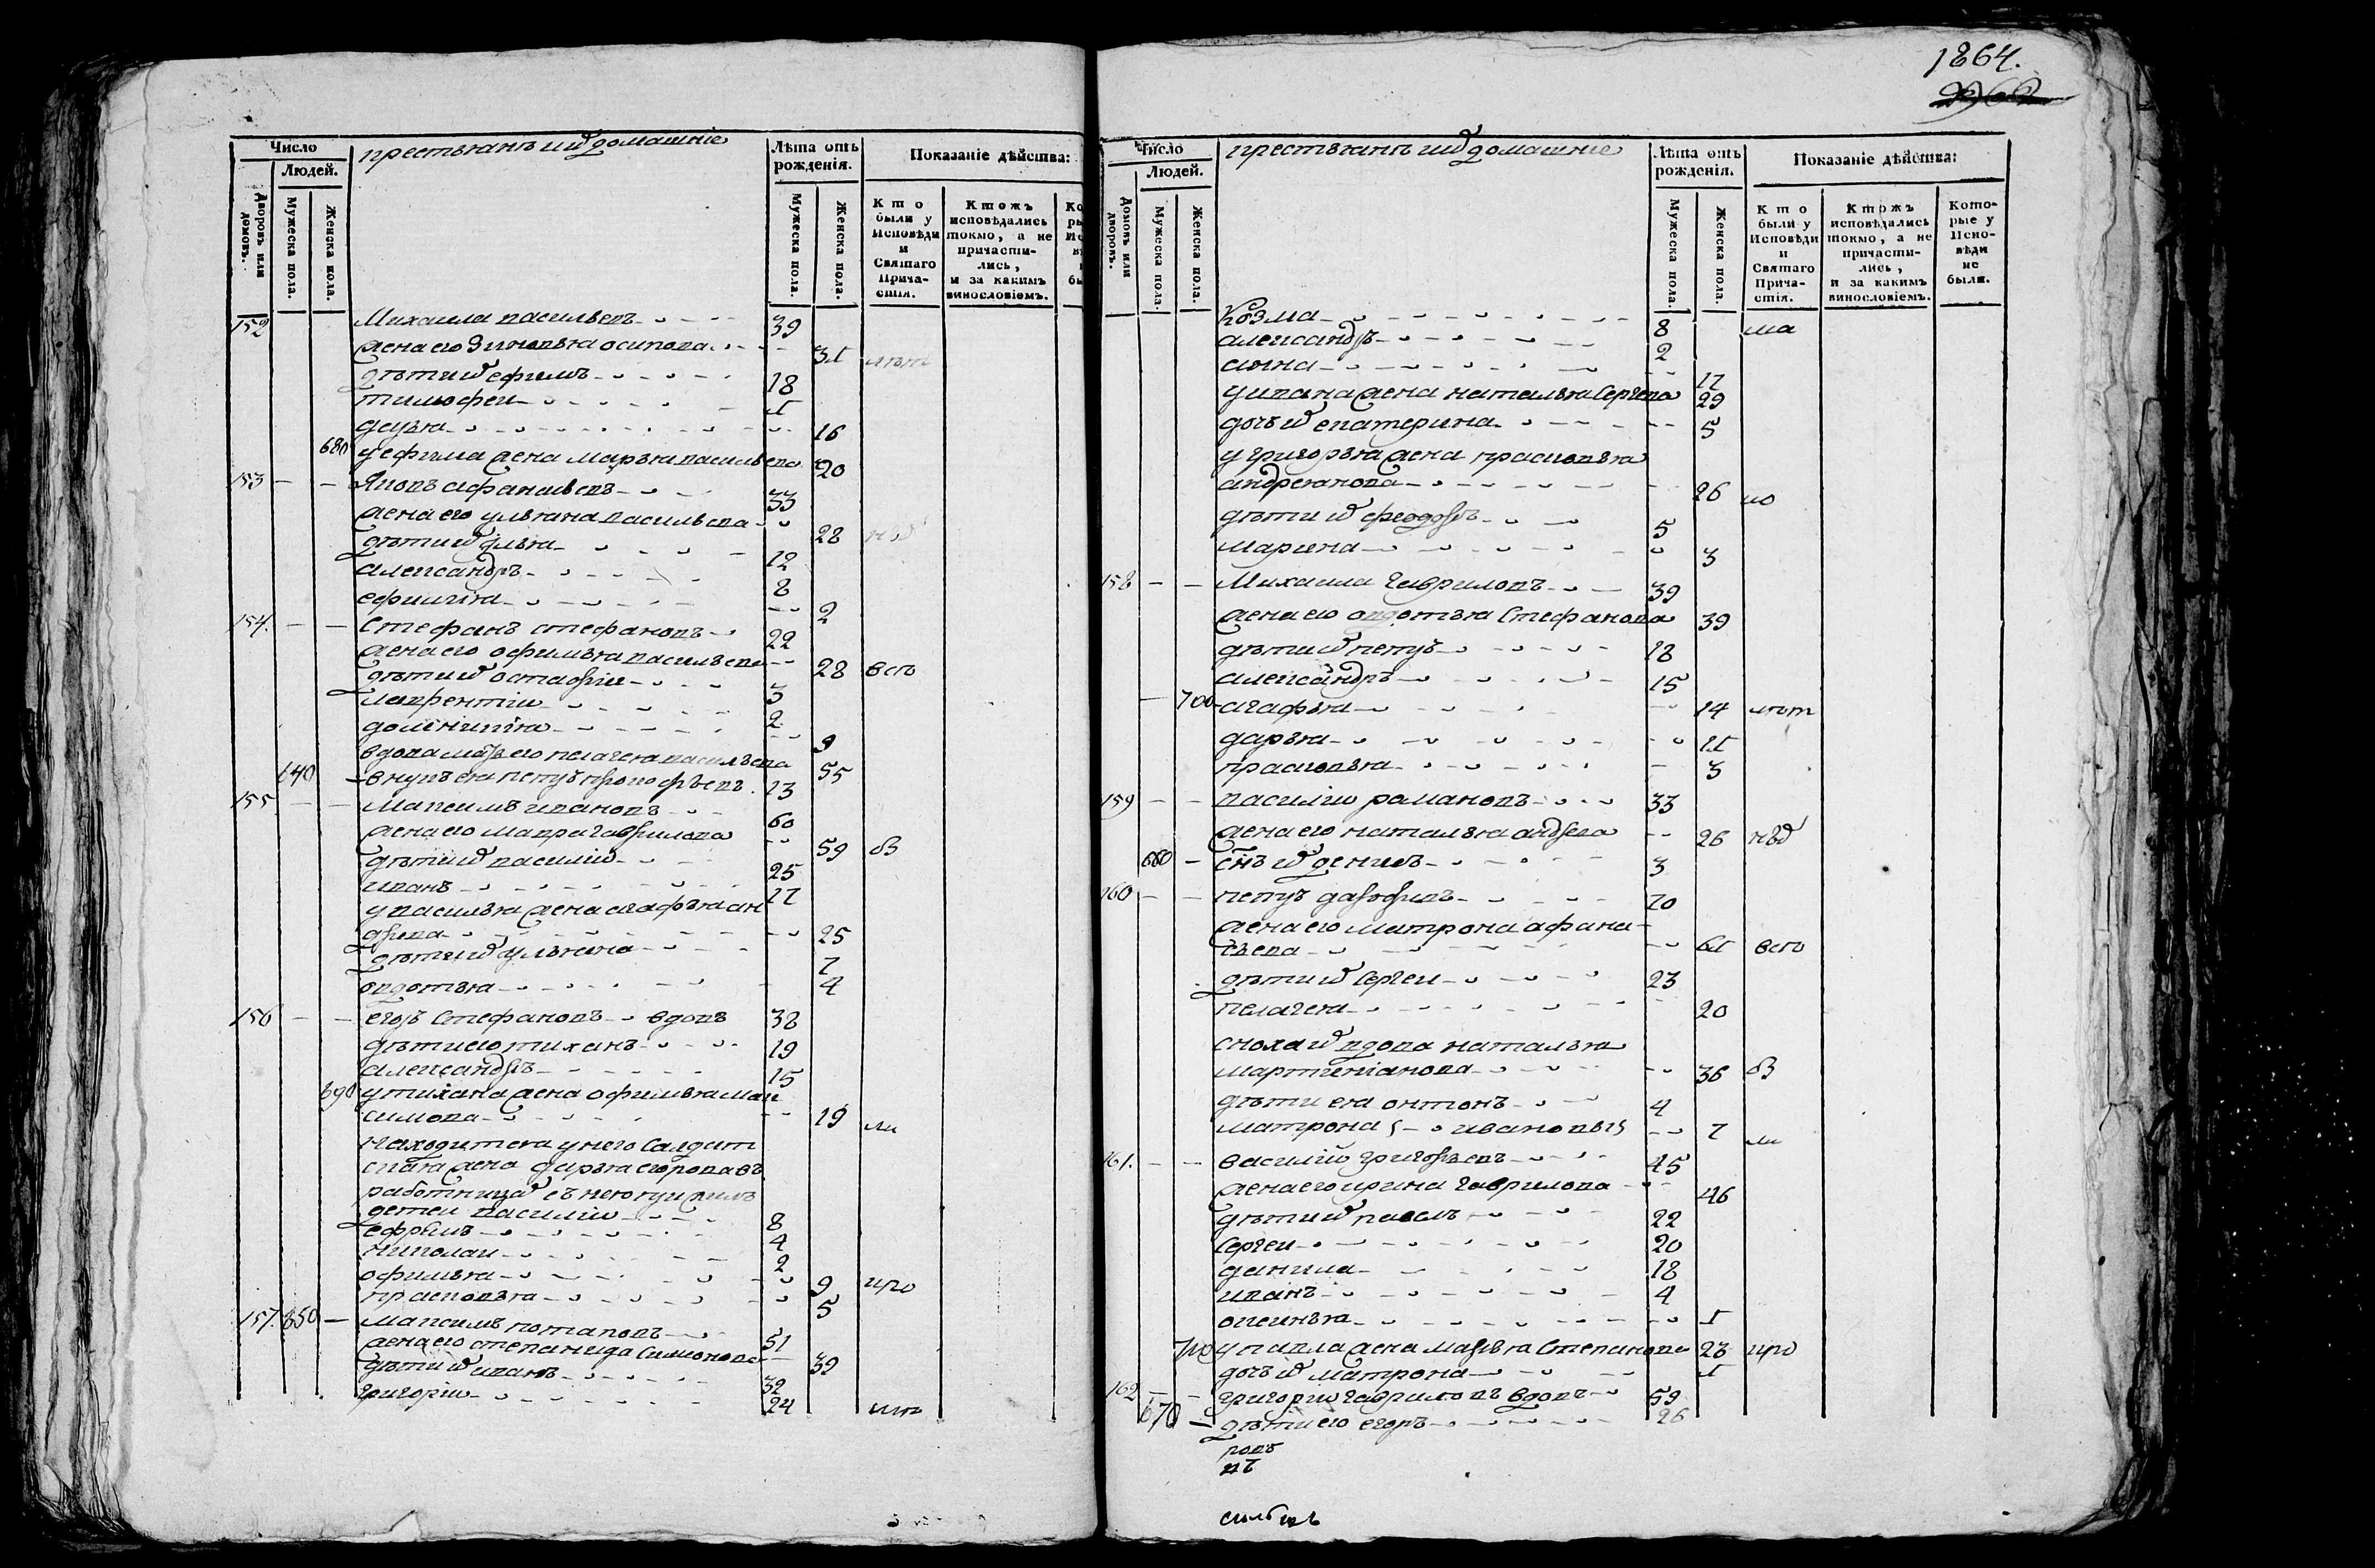 1864.
Число
Людей.
Дворовъ или домовъ.
Мужеска пола.
Женска пола.
крестьянъ и ихъ домашніе
Лѣта отъ рожденія.
Мужеска пола.
Женска пола.
Показаніе дѣйства:
Кто были у Исповѣди и Святаго Прича-стія.
Ктожъ исповѣдались токмо, а не причасти-лись, и за какимъ винословіемъ.
152 Михаила васильевъ 39
жена его Зиновья осипова
дѣти ихъ ефимъ 18
тимофеи
дарья 16
680 у ефима жена марья васильева 20
153 Яковъ афанасьевъ 33
жена его ульяна васильева 28
дѣти ихъ илья 12
александръ 8
ефимия 2
154. Стефанъ стефановъ 22
жена его офимья васильева 28 всѣ
дѣти ихъ остафии 3
лаврентии 2
доминикия 9
вдова мать его пелагея васильева 55
640 внукъ ея петръ прокофьевъ 13
155 Максимъ ивановъ 60
жена его мавра гаврилова 59
дѣти ихъ василии 25
иванъ 17
у василья жена агафья ан
дреева 25
дѣти ихъ ульяна 7
овдотья 4
156 егоръ Стефановъ вдовъ 38
дѣти его тиханъ 19
александръ 15
690 у тихана жена офимья мак
симова 19 ли
находитея у него Салдат
ская жена дарья егорова въ
работницахъ
детеи василии 8
ефримъ 4
николаи 2
офимья 9
прасковья 5
157. 650 максимъ потаповъ 51
жена его степанида Симонова 39
дѣти ихъ иванъ 32
григории 24
Число
Людей.
Домовъ или дворовъ.
Мужеска пола.
Женска пола.
крестьянъ и ихъ домашніе
Лѣта отъ рожденія.
Мужеска пола.
Женска пола.
Показаніе дѣйства:
Кто были у Исповѣди и Святаго Прича-стія.
Ктожъ исповѣдались токмо, а не причасти-лись, и за какимъ винословіемъ.
Кото-рые у Испо-вѣди не были.
Козма 8
александръ 2
анна 17
у ивана жена наталья Сергева 29
дочь ихъ екатерина 5
у григорья жена прасковья
андреянова 26
дѣти ихъ феодоръ 5
марина 3
158 Михаила Гавриловъ 39
жена его овдотья Стефанова 39
дѣти ихъ петръ 18
александръ 15
700 агафья 14
дарья
прасковья 3
159 василии романовъ 33
жена его наталья андрева 26
660 снъ ихъ денисъ 3
160 петръ дорофеевъ 70
жена его матрона афана
сьева всѣ
дѣти ихъ Сергеи 23
пелагея 20
сноха ихъ вдова наталья
мартиніанова 36
дѣти ея онтонъ 4
матрона ивановы 7 ли
161. василии григорьевъ 45
жена его ирина Гаврилова 46
дѣти ихъ павелъ 22
Сергеи 20
данила 18
иванъ 4
оксинья
710 у павла жена марья Степанова 23
дочь ихъ матрона
162 григории гавриловъ вдовъ 59
670 дѣти его егоръ 26